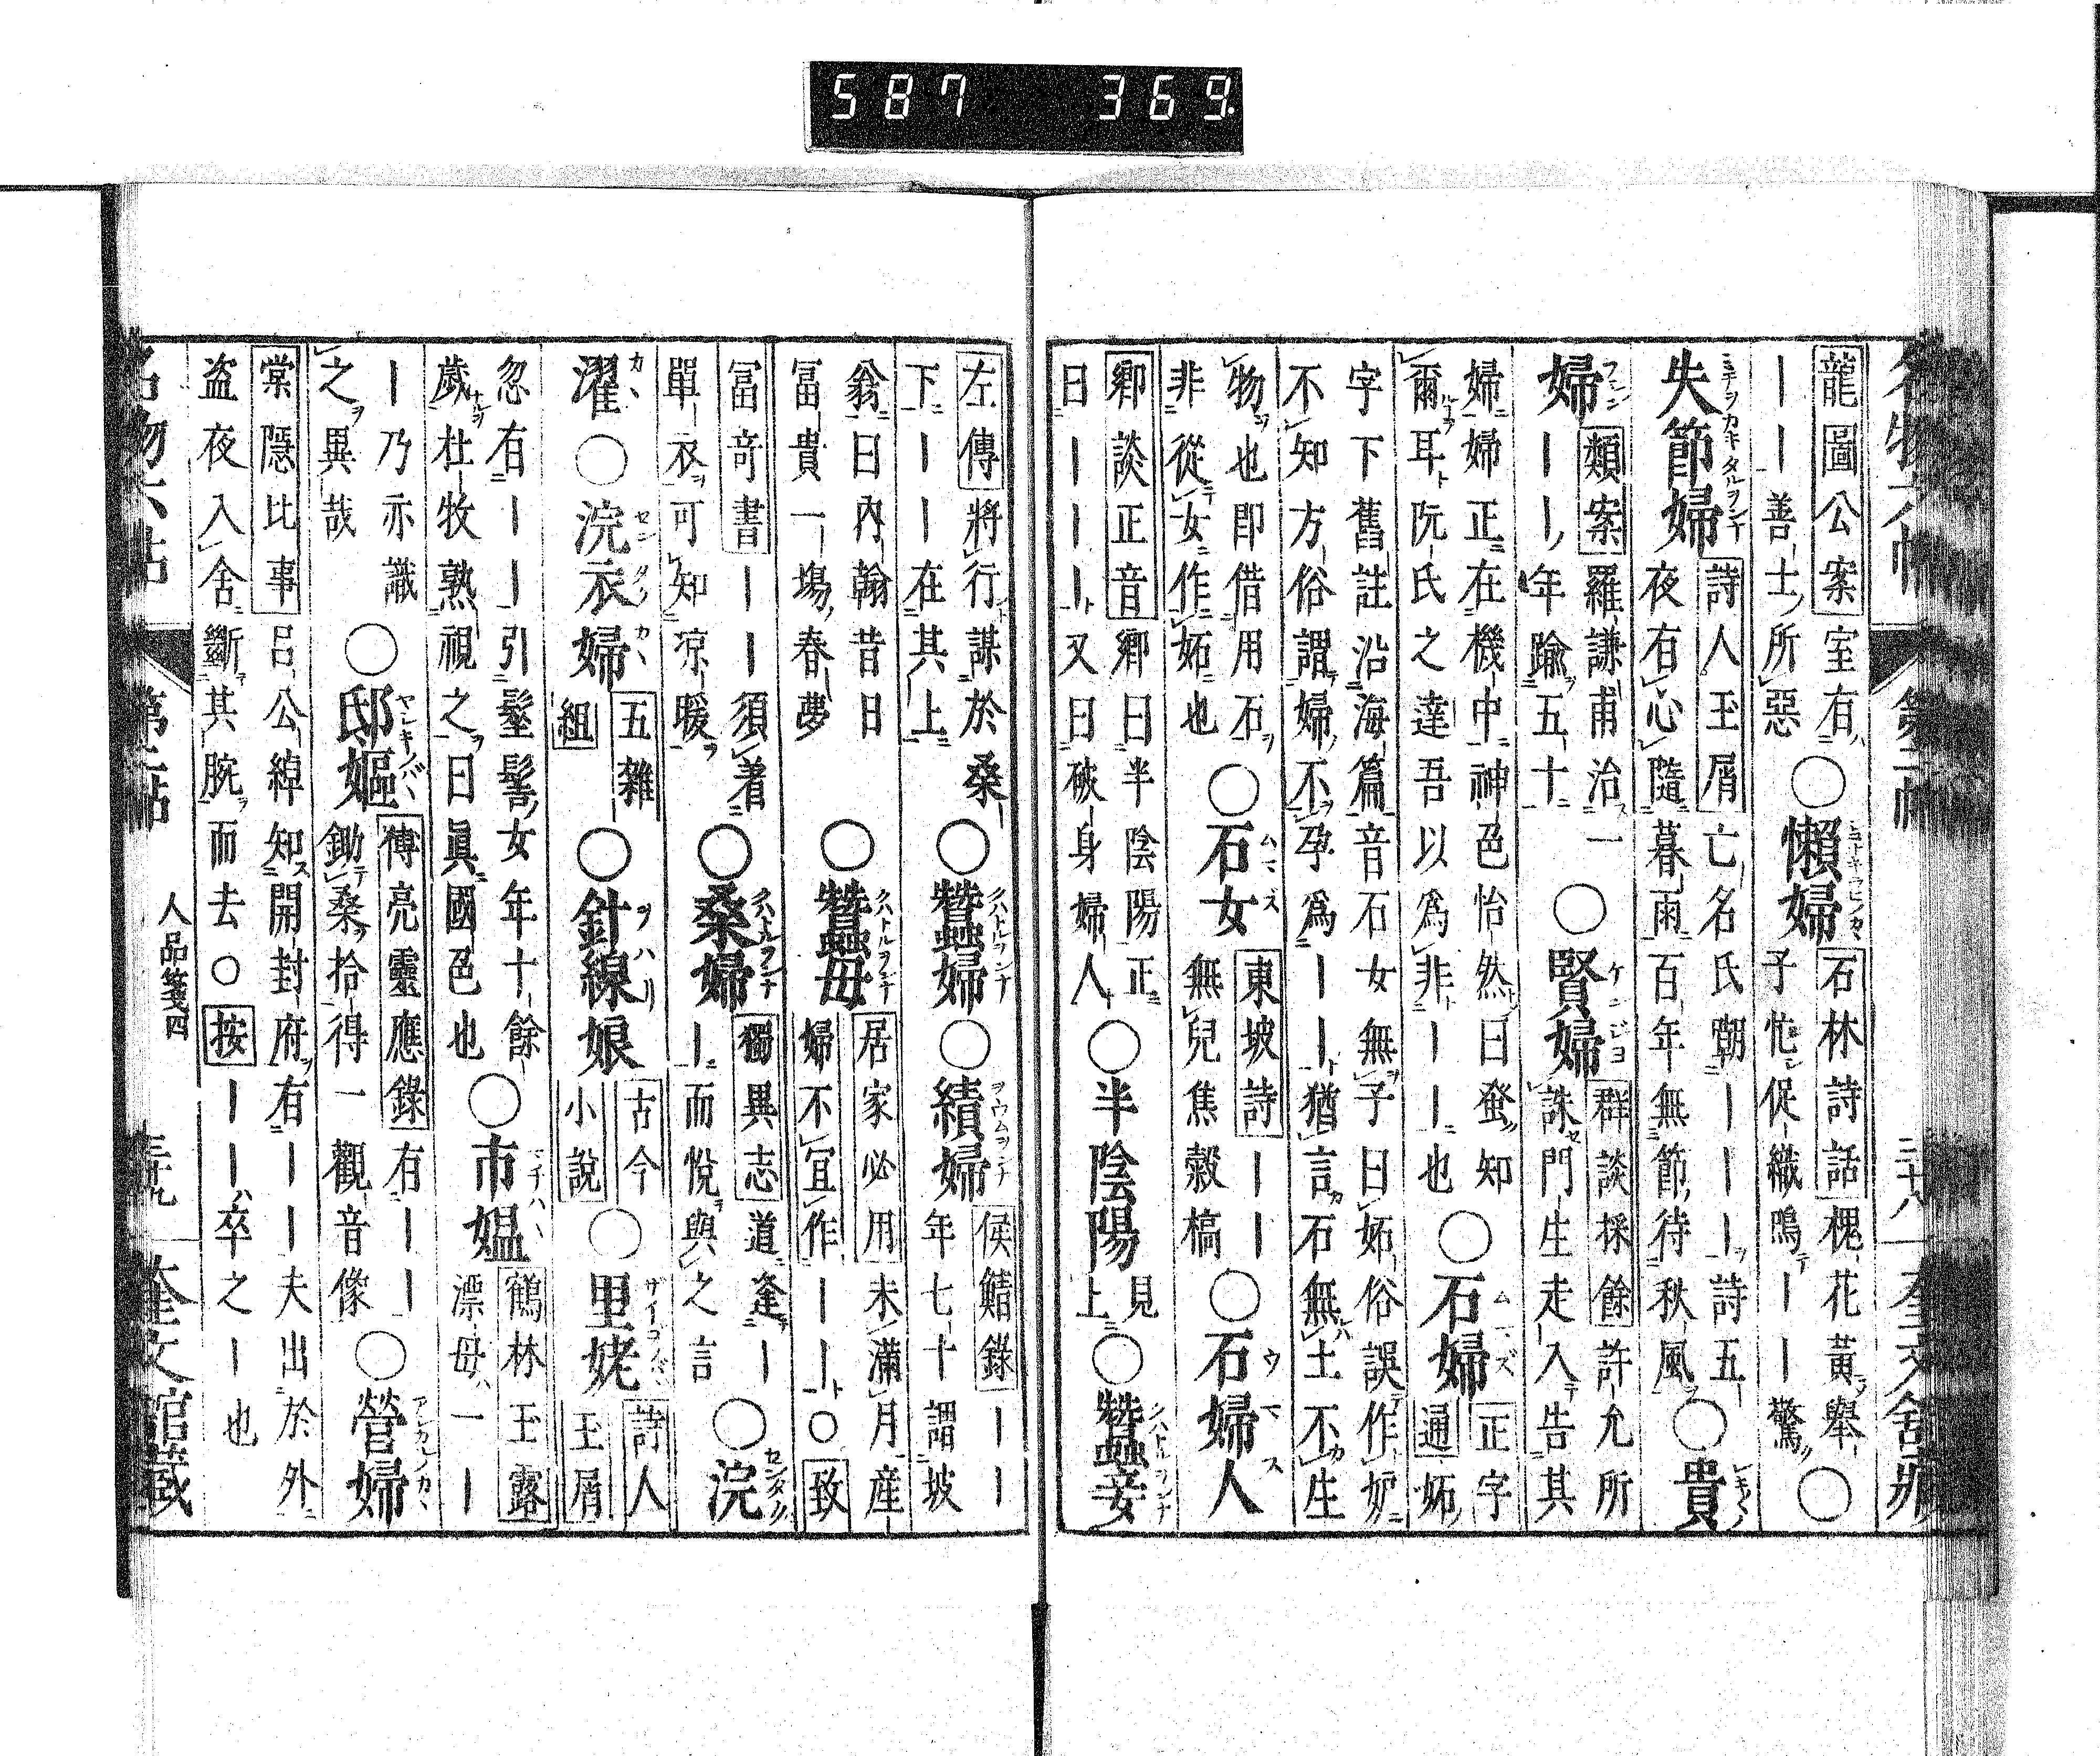 587 369.
龍圖公案室有
｜｜善士所惡
○懶婦
石林詩話槐花黃舉
子忙促織鳴｜｜驚
○
失節婦
詩人玉屑亡名氏嘲｜｜｜詩五
夜有心隨暮雨百年無節待秋風
○貴
婦
類案羅謙甫治一
｜｜年踰五十
○賢婦
群談採餘許允所
誅門生走入告其
婦婦正在機中神色怡然曰蚤知
爾耳阮氏之達吾以爲非｜｜也
○石婦
正字
通妬
字下舊註沿海篇音石女無子曰妬俗誤作妒
不知方俗謂婦不孕爲｜｜猶言石無土不生
物也卽借用石
非從女作妬也
○石女
東坡詩｜｜
無兒焦穀槁
○石婦人
卿談正音卿曰半陰陽正
曰｜｜｜又曰破身婦人
○半陰陽
見
上
○蠶妾
左傳將行謀於桑
下｜｜在其上
○蠶婦
○績婦
侯鯖錄｜｜
年七十謂坡
翁曰內翰昔日
冨貴一塲春夢
○蠶母
居家必用未滿月産
婦不宜作｜｜○致
冨奇書｜｜須着
單衣可知凉暖
○桑婦
獨異志道逢｜
｜而悅與之言
○浣
濯
○浣衣婦
五雜
組
○針線娘
古今
小說
○里姥
詩人
玉屑
忽有｜｜引髽髻女年十餘
歲杜牧熟視之曰眞國色也
○市媼
鶴林玉露
漂母一｜
｜乃亦識
之異哉
○邸嫗
傅亮靈應錄有｜｜
鋤桑拾得一觀音像
○營婦
棠陰比事呂公綽知開封府有｜｜夫出於外
盜夜入舍斷其腕而去○按｜｜卒之｜也
人品箋四